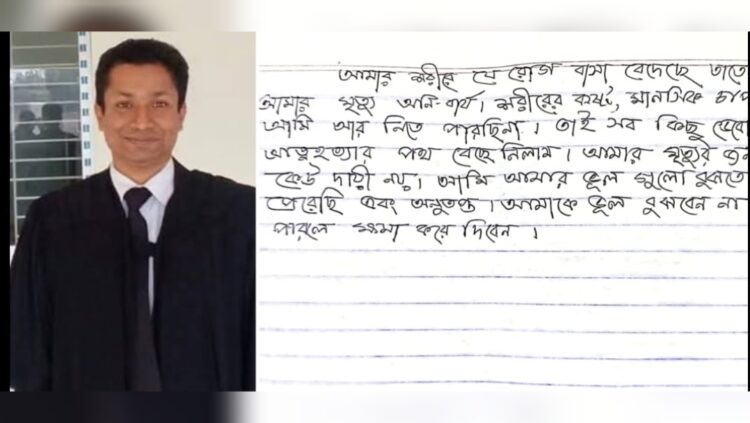 আমার শরীরে যে রোগ বাসা বেদেছে তাতে
আমার মৃত্যু অনিবার্য। শরীরের কষ্ট, মানসিক চাপ
আমি আর নিতে পারছিনা। তাই সব কিছু ভেবে
আত্মহত্যার পথ বেছে নিলাম। আমার মৃত্যুর
কেউ দায়ী নয়। আমি আমার ভূল গুলো বুঝতে
পেরেছি এবং অনুতপ্ত। আমাকে ভূল বুঝবেন না
পারলে ক্ষমা করে দিবেন।